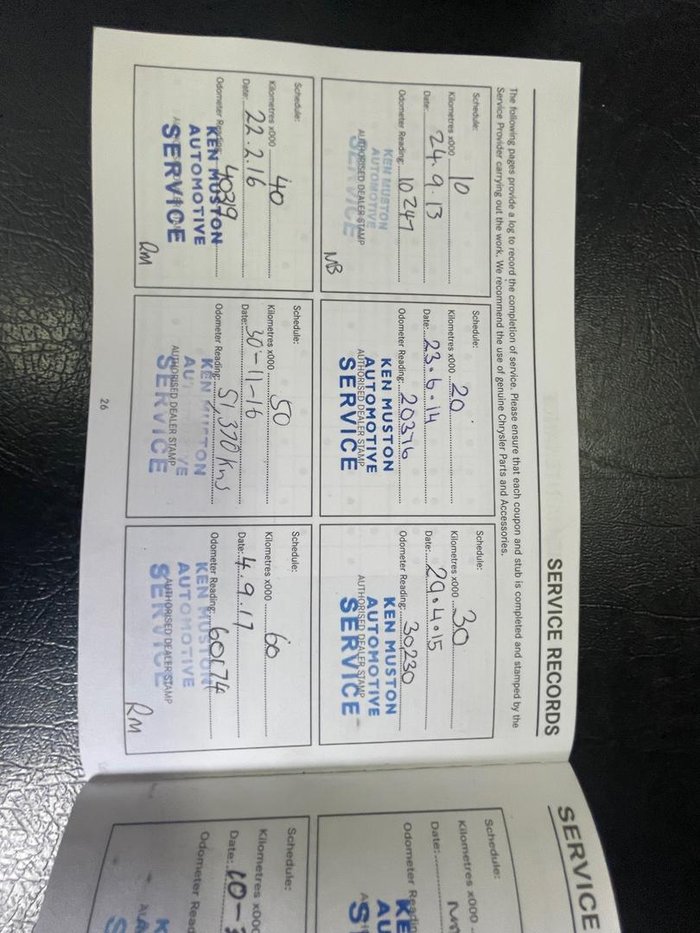 SERVICE RECORDS
The following pages provide a log to record the completion of service. Please ensure that each coupon and stub is completed and stamped by the
Service Provider carrying out the work. We recommend the use of genuine Chrysler Parts and Accessories.
Schedule:
Kilometres x000 10
Date: 24.9.13
Odometer Reading: 10247
KEN MUSTON
AUTOMOTIVE
AUTHORISED DEALER STAMP
SERVICE
NB
Schedule:
Kilometres x000 20
Date: 23.6.14
Odometer Reading: 20376
KEN MUSTON
AUTOMOTIVE
AUTHORISED DEALER STAMP
SERVICE
Schedule:
Kilometres x000 30
Date: 29.4.15
Odometer Reading: 30,230
KEN MUSTON
AUTOMOTIVE
AUTHORISED DEALER STAMP
SERVICE
Schedule:
Kilometres x000 40
Date: 22.2.16
Odometer Reading:
KEN MUSTON
AUTOMOTIVE
SERVICE
RM
Schedule:
Kilometres x000 50
Date: 30-11-16
Odometer Reading: 51,370 kms
KEN MUSTON
AUTHORISED DEALER STAMP
SERVICE
Schedule:
Kilometres x000 60
Date: 4.9.17
Odometer Reading: 60174
KEN MUSTON
AUTOMOTIVE
AUTHORISED DEALER STAMP
SERVICE
RM
26
SERVICE
Schedule:
Kilometres x000
Date:
Odometer Readin
KE
AU
S
Schedule:
Kilometres x000
Date: 10-
Odometer Read